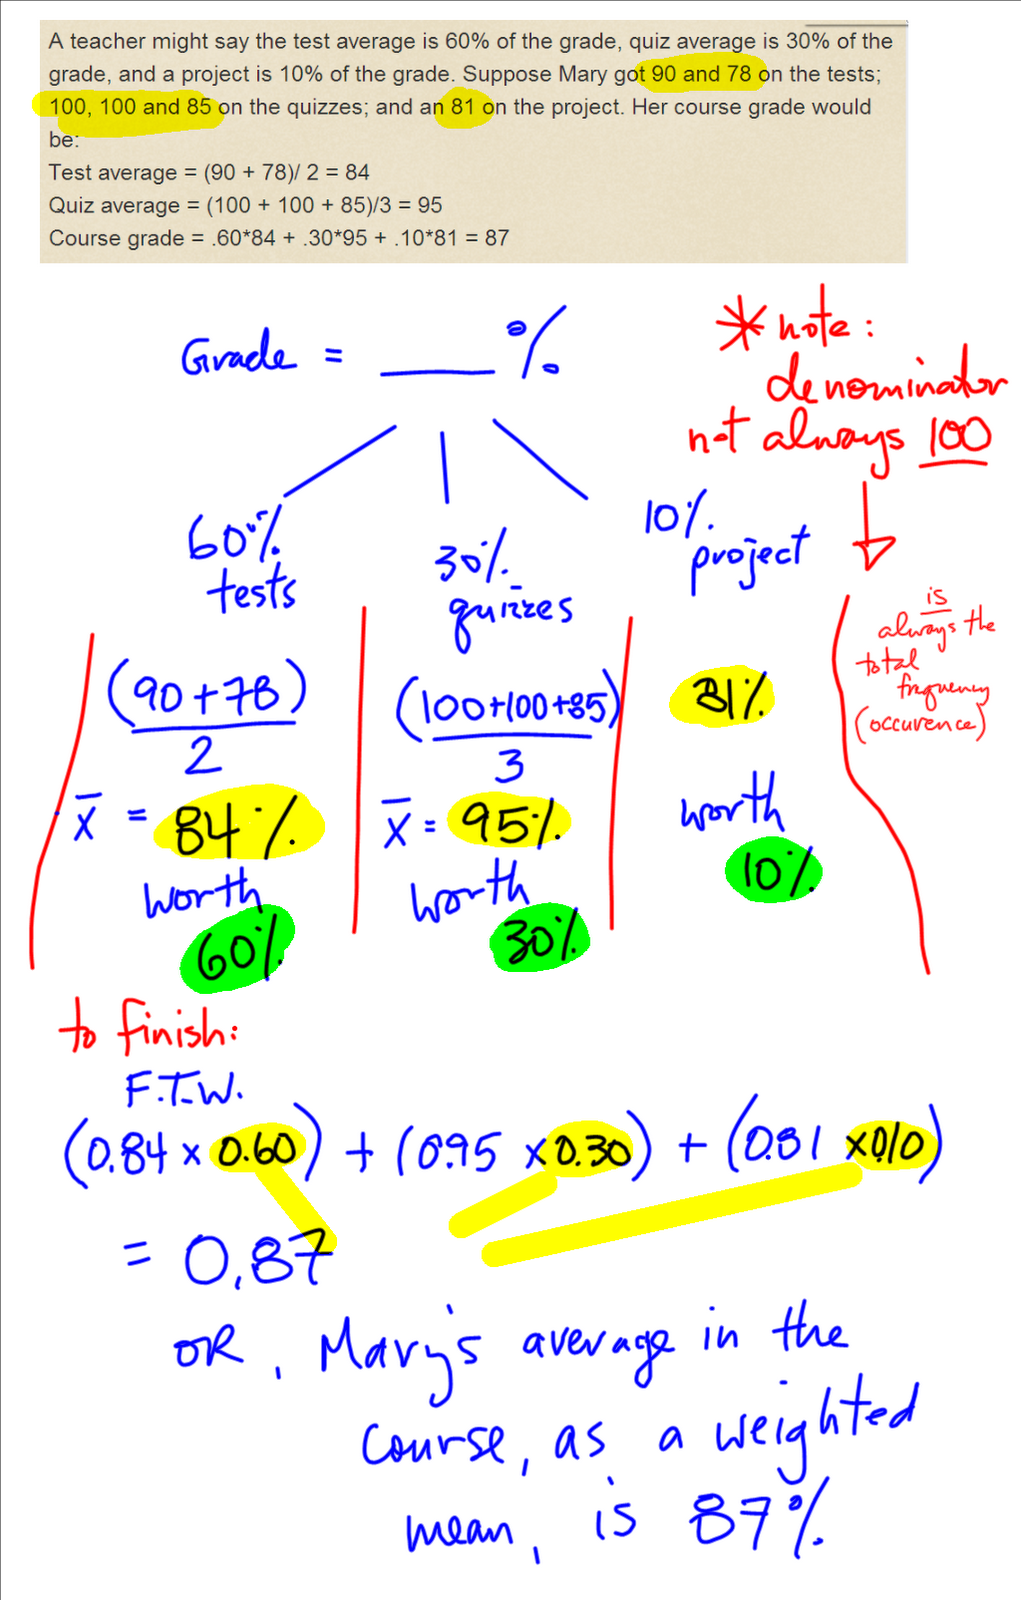 A teacher might say the test average is 60% of the grade, quiz average is 30% of the
grade, and a project is 10% of the grade. Suppose Mary got 90 and 78 on the tests;
100, 100 and 85 on the quizzes; and an 81 on the project. Her course grade would
be:
Test average = (90 + 78)/ 2 = 84
Quiz average = (100 + 100 + 85)/3 = 95
Course grade = .60*84 + .30*95 + .10*81 = 87
Grade = ___ %
* note:
denominator
not always 100
is
always the
total
frequency
(occurence)
60%
tests
30%
quizzes
10%
project
(90+78)
2
x̄ = 84%
worth
60%
(100+100+85)
3
x̄ = 95%
worth
30%
81%
worth
10%
to finish:
F.T.W.
(0.84 x 0.60) + (0.95 x 0.30) + (0.81 x 0.10)
= 0.87
OR, Mary's average in the
course, as a weighted
mean, is 87%